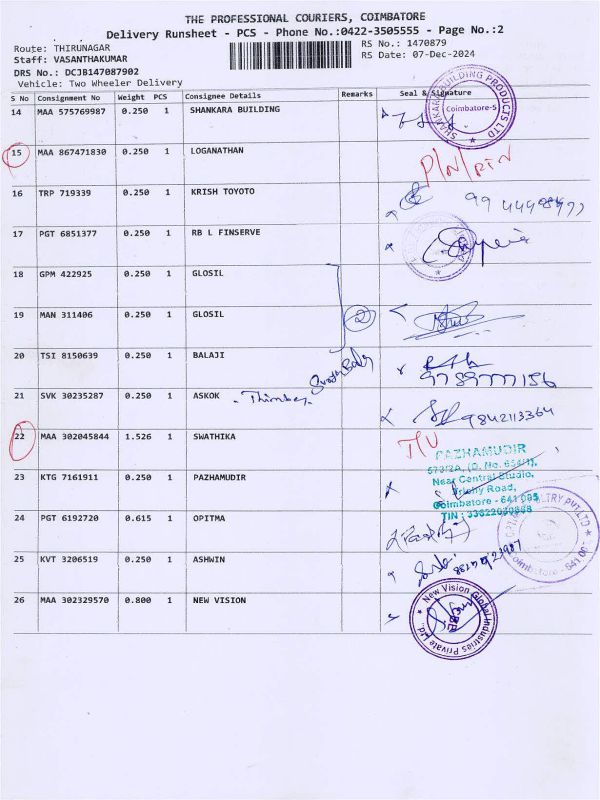 THE PROFESSIONAL COURIERS, COIMBATORE
Delivery Runsheet - PCS - Phone No.:0422-3505555 - Page No.:2
Route: THIRUNAGAR
RS No.: 1470879
Staff: VASANTHAKUMAR
RS Date: 07-Dec-2024
DRS No.: DCJB147087902
Vehicle: Two Wheeler Delivery
S No Consignment No Weight PCS Consignee Details Remarks Seal & Signature
14 MAA 575769987 0.250 1 SHANKARA BUILDING
SHANKARA BUILDING PRODUCTS LTD
Coimbatore-5
15 MAA 867471830 0.250 1 LOGANATHAN
P/N/RTN
16 TRP 719339 0.250 1 KRISH TOYOTO
17 PGT 6851377 0.250 1 RB L FINSERVE
18 GPM 422925 0.250 1 GLOSIL
19 MAN 311406 0.250 1 GLOSIL
2
20 TSI 8150639 0.250 1 BALAJI
9789777156
21 SVK 30235287 0.250 1 ASKOK
9842113364
22 MAA 302045844 1.526 1 SWATHIKA
23 KTG 7161911 0.250 1 PAZHAMUDIR
PAZHAMUDIR
Near Central Studio,
Trichy Road,
Coimbatore - 641 005
24 PGT 6192720 0.615 1 OPITMA
25 KVT 3206519 0.250 1 ASHWIN
26 MAA 302329570 0.800 1 NEW VISION
New Vision Global Industries Private Ltd.